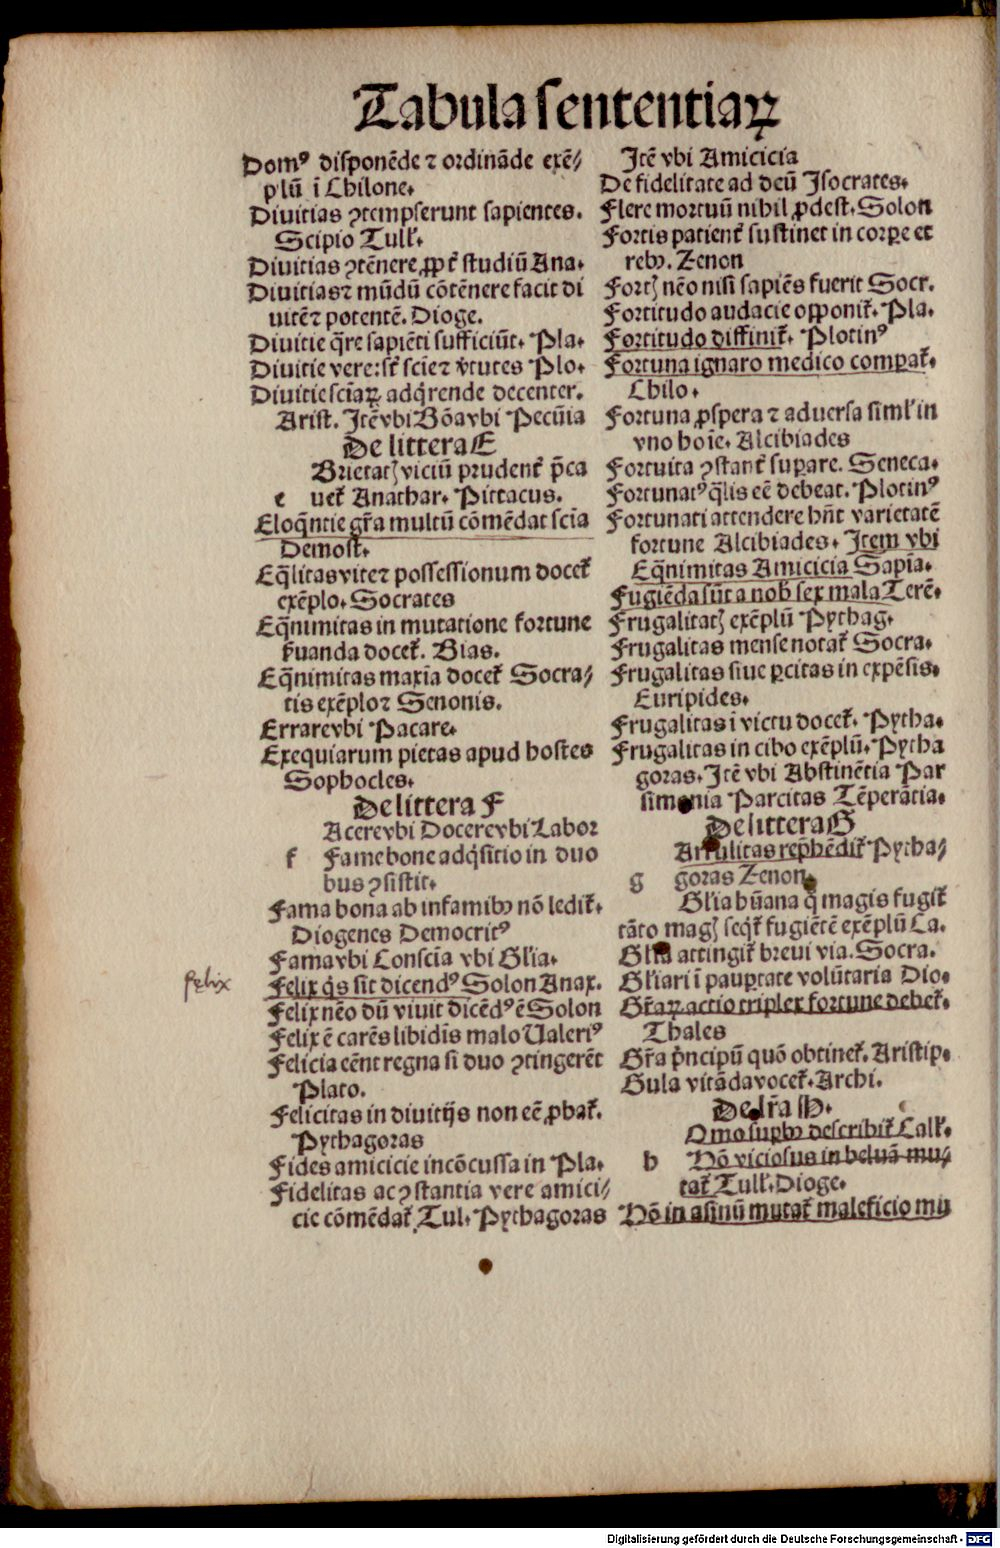 Tabula sententiaꝝ
Domꝰ disponēde ⁊ ordināde exē⸗
plū ī Chilone.
Diuitias ꝯtempserunt sapientes.
Scipio Tuỻ.
Diuitias ꝯtēnere ꝓpt̄ studiū Ana.
Diuitias ⁊ mūdū cōtēnere facit di
uitē ⁊ potentē. Dioge.
Diuitie q̄re sapiēti sufficiūt. Pla.
Diuitie vere: st̄ sciē ⁊ v̄tutes Plo.
Diuitie sciaꝝ adq̄rende decenter.
Arist. Itē vbi Bōa vbi Pecūia
De littera E
Brietatꝭ viciū prudent̄ p̄ca
e uet̄ Anachar. Pittacus.
Eloq̄ntie gr̄a multū cōmēdat scīa
Demost.
Eq̄litas vite ⁊ possessionum docet̄
exēplo. Socrates
Eq̄nimitas in mutatione fortune
ẜuanda docet̄. Bias.
Eq̄nimitas maxīa docet̄ Socra⸗
tis exēplo ⁊ Senonis.
Errare vbi Pacare.
Exequiarum pietas apud hostes
Sophocles.
De littera F
Acere vbi Docere vbi Labor
f Fame bone adq̄sitio in duo
bus ꝯsistit.
Fama bona ab infamibꝰ nō ledit̄.
Diogenes Democritꝰ
Fama vbi Conscīa vbi Glīa.
Felix q̄s sit dicendꝰ Solon Anax.
felix
Felix nēo dū viuit dicēdꝰ ē Solon
Felix ē carēs libidīs malo Ualeriꝰ
Felicia eēnt regna si duo ꝯtingerēt
Plato.
Felicitas in diuitijs non eē ꝓbat̄.
Pythagoras
Fides amicicie incōcussa in Pla.
Fidelitas ac ꝯstantia vere amici⸗
cie cōmēdat̄ Tul. Pythagoras
Itē vbi Amicicia
De fidelitate ad deū Isocrates.
Flere mortuū nihil ꝓdest. Solon
Fortis patient̄ sustinet in corꝑe et
rebꝰ. Zenon
Fortꝭ nēo nisi sapiēs fuerit Socr.
Fortitudo audacie opponit̄. Pla.
Fortitudo diffinit̄. Plotinꝰ
Fortuna ignaro medico comꝑat̄.
Chilo.
Fortuna ꝓspera ⁊ aduersa simł in
vno hoīe. Alcibiades
Fortuita ꝯstant̄ suꝑare. Seneca.
Fortunatꝰ q̄lis eē debeat. Plotinꝰ
Fortunati attendere hn̄t varietatē
fortune Alcibiades. Item vbi
Eq̄nimitas Amicicia Sapīa.
Fugiēda sūt a nob̄ sex mala Terē.
Frugalitatꝭ exēplū Pythag.
Frugalitas mense notat̄ Socra.
Frugalitas siue ꝑcitas in expēsis.
Euripides.
Frugalitas ī victu docet̄. Pytha.
Frugalitas in cibo exēplū. Pytha
goras. Itē vbi Abstinētia Par
simonia Parcitas Tēperātia.
De littera G
Arrulitas rep̄hēdit̄ Pytha⸗
g goras Zenon.
Glīa hūana q̄ magis fugit̄
tāto magꝭ seq̄t̄ fugiētē exēplū Ca.
Glīa attingit̄ breui via. Socra.
Glīari ī pauꝑtate volūtaria Dio.
Gr̄aꝝ actio triplex fortune debet̄.
Thales
Gr̄a p̄ncipū quō obtinet̄. Aristip.
Gula vitāda vocet̄. Archi.
De lr̄a H.
Omo suꝑbꝰ describit̄ Calł.
h Hō viciosus in beluā mu⸗
tat̄ Tuỻ. Dioge.
Hō in asinū mutat̄ maleficio mu
Digitalisierung gefördert durch die Deutsche Forschungsgemeinschaft - DFG